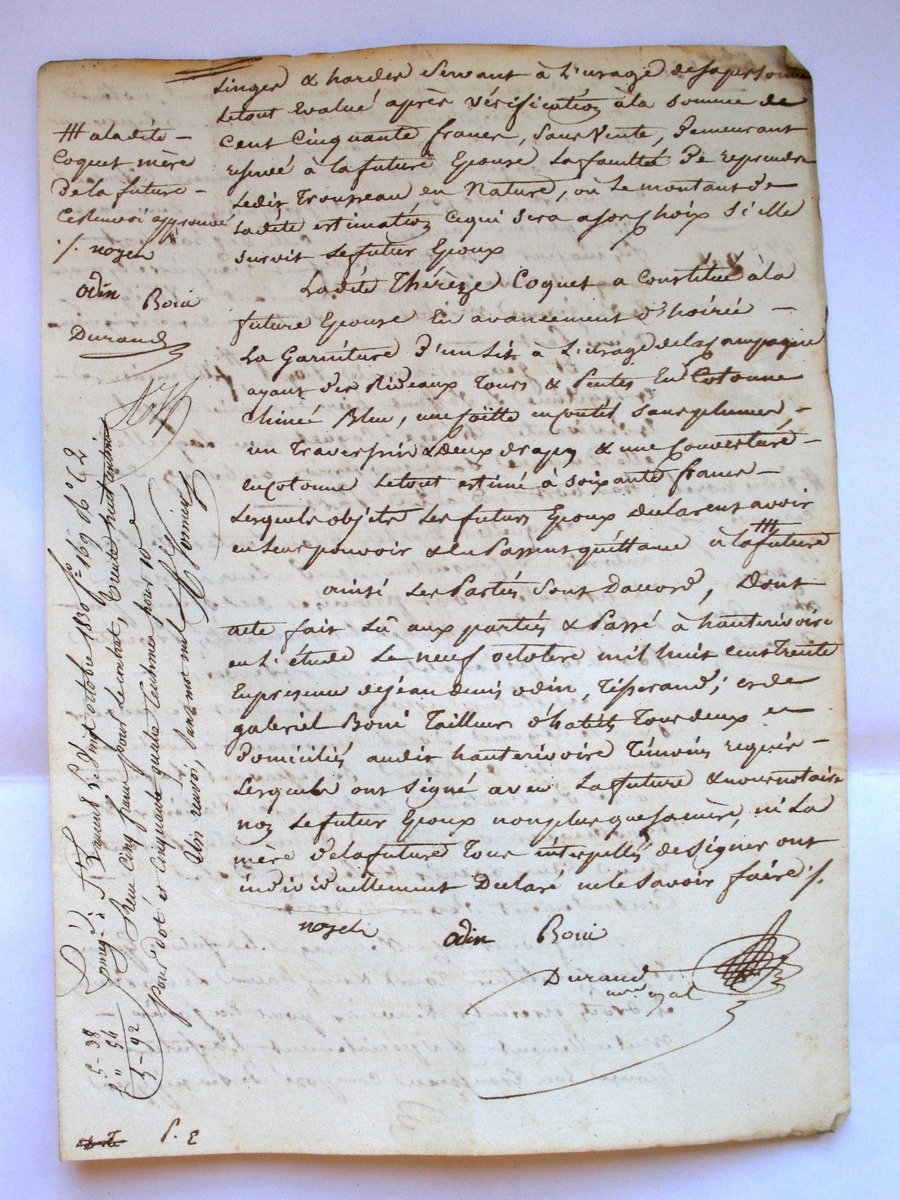 Linges & hardes servant à l'usage de sa personne
le tout évalué après vérification à la somme de
cent cinquante francs, sans vente, demeurant
à la future Epouse la faculté de reprendre
ledit Trousseau en Nature, où le montant de
ladite estimation ce qui sera a son choix si elle
survit le futur Epoux
Ladite Thérèze Coquet a constitué à la
future Epouse En avancement d'hoirie –
La Garniture d'un Lit à l'usage de la Campagne
ayant des Rideaux Tours & Pentes En Cotonne
Chiné Bleu, une en coutil sans plumes –
un Traversin & deux draps & une Couverture –
en cotonne le tout estimé à soixante francs –
Lesquels objets les futurs Epoux declarent avoir
en leur pouvoir & En Passent quittance à la ₶ future
ainsi Les Parties sont D'accord, Dont
acte fait Lû aux parties & Passé à hauterivoire
en L'étude Le neuf octobre mil huit cent trente
En presence de jean denis odin, Tisserand, et de
gabriel Boni Tailleur d'habits Tous deux
Domiciliés audit hauterivoire Témoins requis –
Lesquels ont signé avec La future & nous notaire
non le futur Epoux non plus que sa mère, ni La
mère de la future Tous interpellés de signer ont
individuellement Declaré ne le savoir faire ./.
odin Boni
Durand
₶ a ladite –
Coquet mère
De la future –
Ce renvoi approuvé
./.
odin Boni
Durand
octobre 1830 f° 169
Reçu Cinq francs pour Le contrat, Trente huit centimes
pour dot et Cinquante quatre Centimes pour 10e
Un renvoi,
5 – 38
" 54
5 – 92